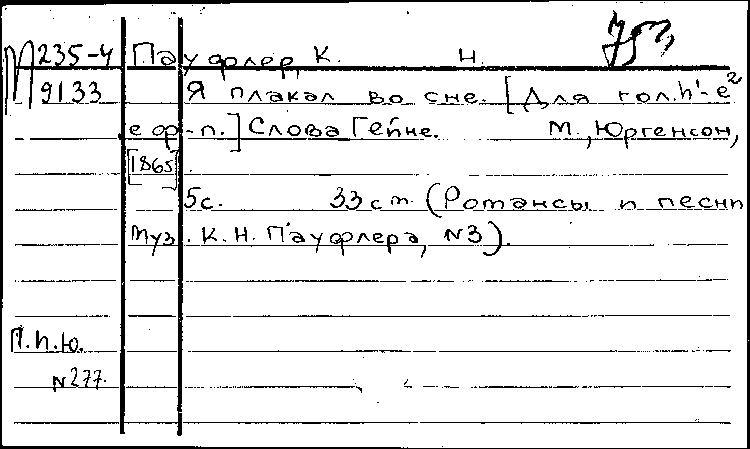 М 235-4 Пауфлер, К. Н. 753
9133 Я плакал во сне. [Для гол. h¹-e²
с ф-п.] Слова Гейне. М., Юргенсон,
[1865]
5с. 33 см. (Романсы и песни
муз. К. Н. Пауфлера, N3).
П.п.Ю.
N277.